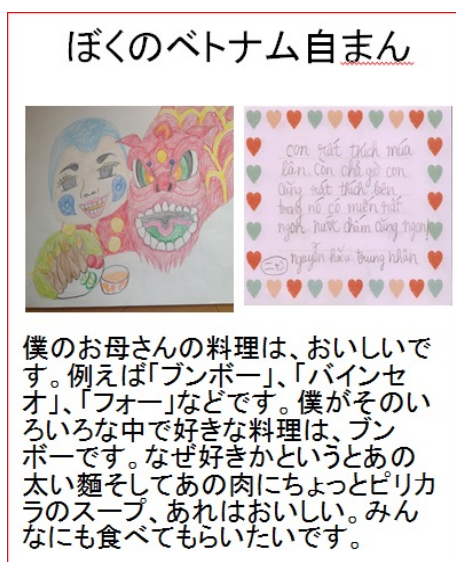 ぼくのベトナム自まん
con rất thích múa
lân. Còn chả giò con
cũng rất thích bên
trong nó có miến rất
ngon nước chấm cũng ngon!
nguyễn hữu trung nhân
僕のお母さんの料理は、おいしいで
す。例えば「ブンボー」、「バインセ
オ」、「フォー」などです。僕がそのい
ろいろな中で好きな料理は、ブン
ボーです。なぜ好きかというとあの
太い麵そしてあの肉にちょっとピリカ
ラのスープ、あれはおいしい。みん
なにも食べてもらいたいです。